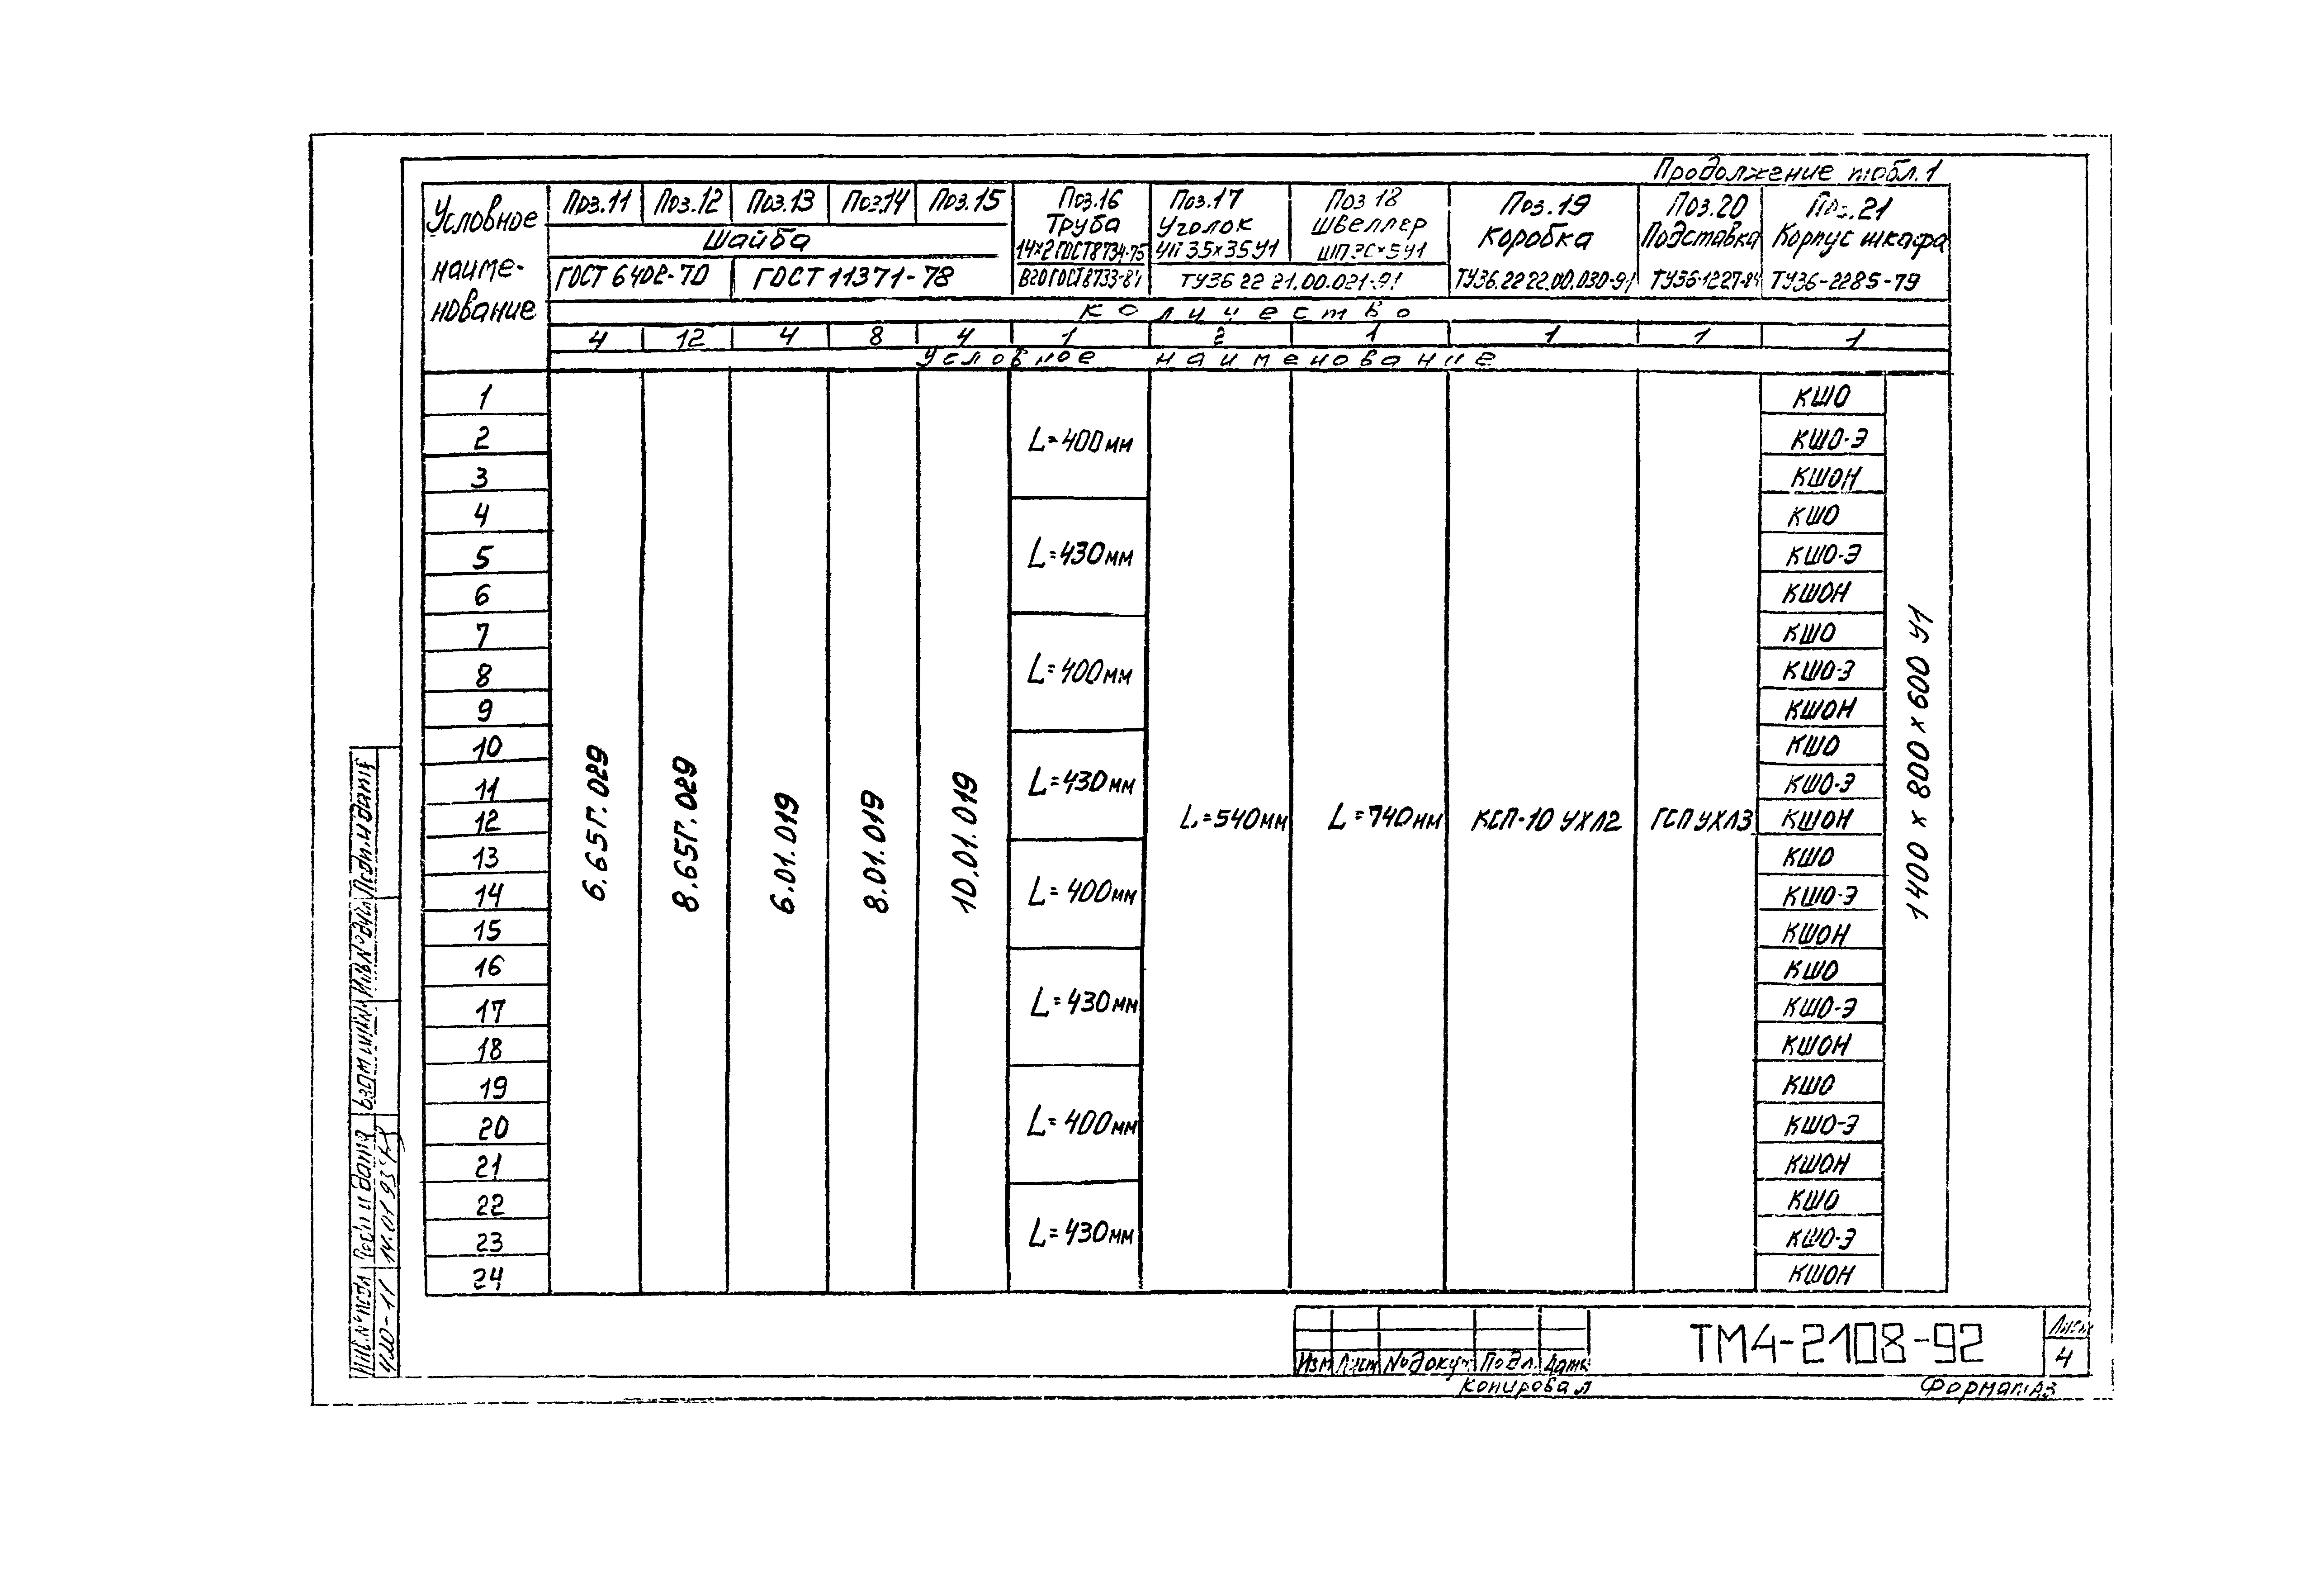 Продолжение табл.1
Условное наименование
Поз.11 Поз.12 Поз.13 Поз.14 Поз.15 Поз.16 Поз.17 Поз 18 Поз.19 Поз.20 Поз.21
Шайба Труба Уголок Швеллер Коробка Подставка Корпус шкафа
14х2 ГОСТ 8734-75 УП 35х35 У1
ГОСТ 6402-70 ГОСТ 11371-78 В20 ГОСТ 8733-87 ТУ36 22 21.00.021-91 ТУ36.22 22.00.030-91 ТУ36-1227-84 ТУ36-2285-79
Количество
4 12 4 8 4 1 2 1 1 1 1
Условное наименование
1 КШО
2 L=400мм КШО-Э
3 КШОН
4 КШО
5 L=430мм КШО-Э
6 КШОН
7 КШО
8 L=400мм КШО-Э
9 КШОН
10 КШО
11 L=430мм КШО-Э
12 6.65Г.029 8.65Г.029 6.01.019 8.01.019 10.01.019 L=540мм L=740мм КСП-10 УХЛ2 ГСП УХЛ3 КШОН 1400 х 800 х 600 У1
13 КШО
14 L=400мм КШО-Э
15 КШОН
16 КШО
17 L=430мм КШО-Э
18 КШОН
19 КШО
20 L=400мм КШО-Э
21 КШОН
22 КШО
23 L=430мм КШО-Э
24 КШОН
Инв.№ подл Подп и дата Взам инв№ Инв№ дубл Подп.и дата
14.01 93
Изм Лист № докум Подп. Дата
ТМ4-2108-92
Лист
4
Копировал
Формат А3